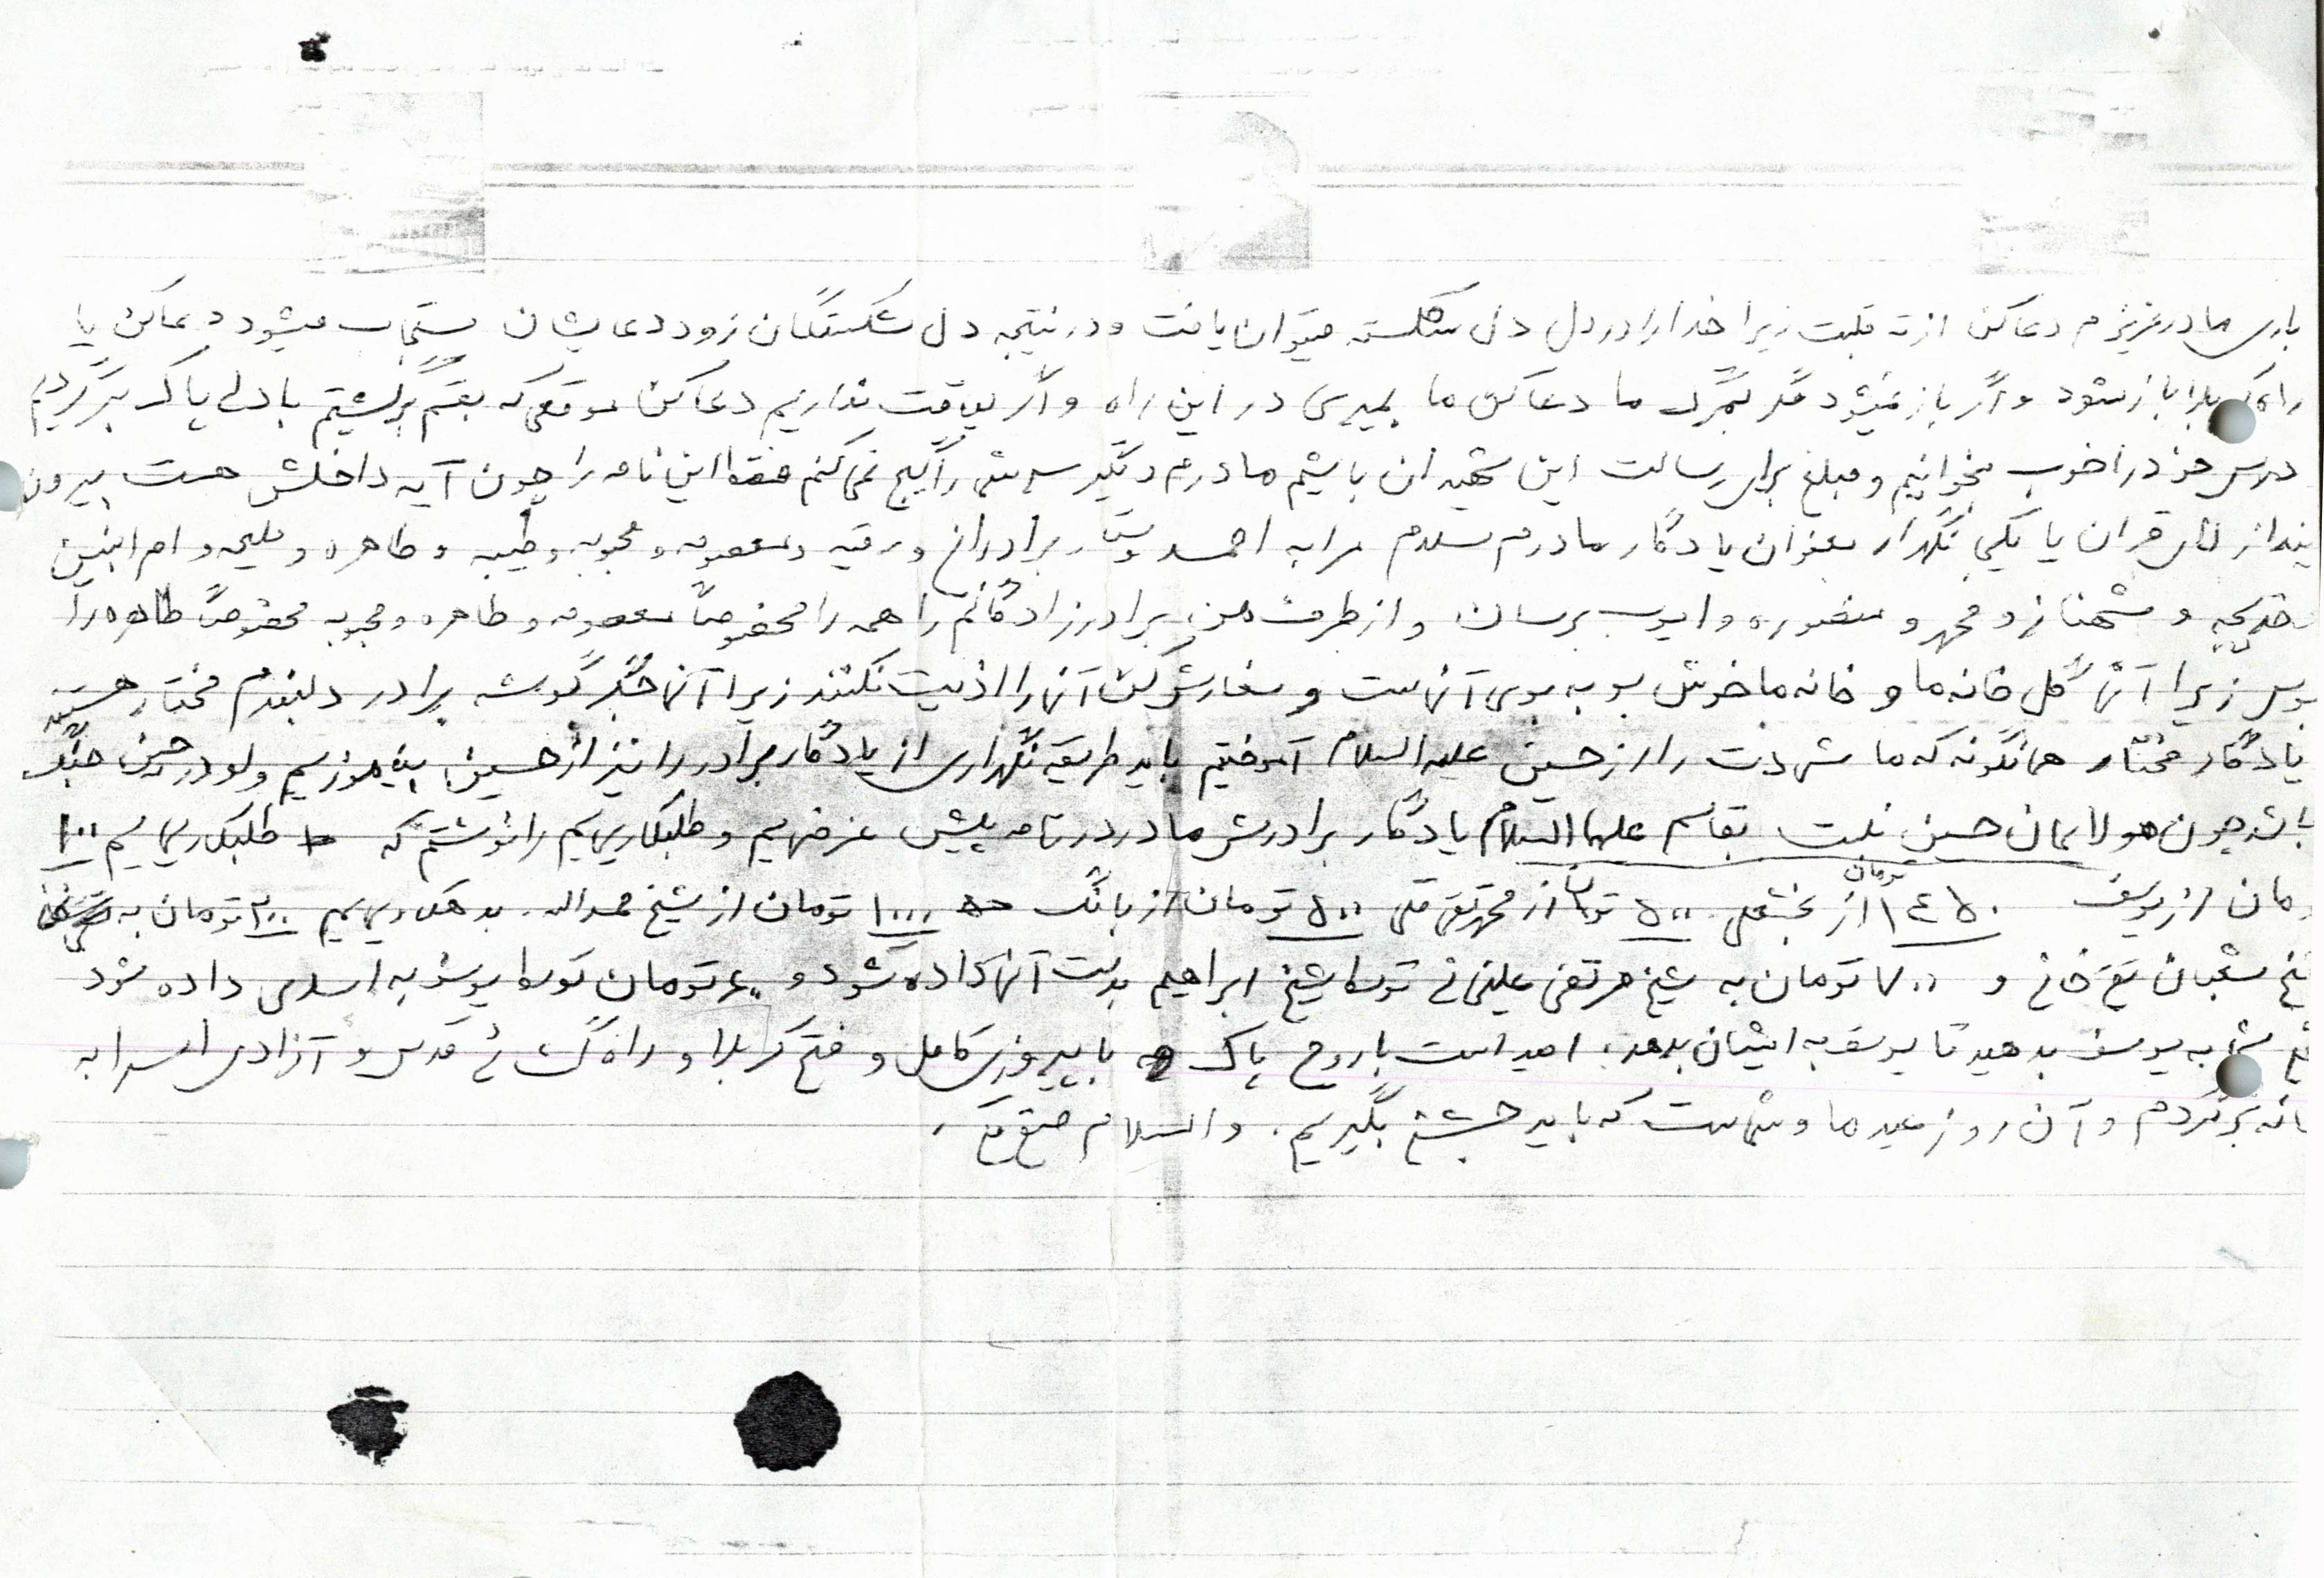 باری مادر عزیزم دعا کن از ته قلبت زیرا خدا را در دل دل شکسته میتوان یافت و در نتیجه دل شکستگان زود دعایشان مستجاب میشود دعا کن یا
راه کربلا باز شود و اگر باز نمیشود مگر بمرگ ما دعا کن ما بمیریم در این راه و اگر لیاقت نداریم دعا کن موقعی که بقم برگشتیم با دلی پاک برگردیم
درس خود را خوب بخوانیم و مبلغ برای رسالت این شهیدان باشیم مادرم دیگر سر شما را گیج نمی کنم فقط این نامه را چون آیه داخلش هست بیرون
نینداز لای قران یا یکجایی نگهدار بعنوان یادگار مادرم سلام مرا به احمد و برادران و رقیه و معصومه و محبوبه و طیبه و طاهره و ملیحه و ام البنین
خدیجه و شهناز و محمد و منصوره و ایوب برسان و از طرف من برادرزادگانم را همه را مخصوصاً معصومه و طاهره و محبوبه مخصوصاً طاهره را
ببوس زیرا آنها گل خانه ما و خانه ما خوش بو به بوی آنهاست و سفارش کن آنها را اذیت نکنند زیرا آنها جگر گوشه برادر دلبندم مختار هستند
یادگار مختار همانگونه که ما شهادت را از حسین علیه السلام آموختیم باید طریقه نگهداری از یادگار برادر را نیز از حسین بیاموزیم ولو در حین جنگ
باشد چون مولایمان حسین نسبت بقاسم علیهما السلام یادگار برادرش مادر در نامه پیش عرضهایم و طلبکاریهایم را نوشتم که طلبکاریهایم ۱۰۰
تومان از یوسف ۱٤۵۰ تومان از بخشعلی ۵۰۰ تومان از محمدتقی ۵۰۰ تومان از بانک ۱۰۰۰ تومان از شیخ حمدالله. بدهکاریهایم ۲۰۰ تومان به
شیخ شعبان و ۷۰۰ تومان به شیخ مرتضی علیخانی توسط شیخ ابراهیم بدست آنها داده شود و ۶۰ تومان توسط یوسف به اسلامی داده شود
شما به یوسف بدهید تا یوسف به ایشان بدهد. امید است با روح پاک با پیروزی کامل و فتح کربلا و راه گشائی قدس و آزادی اسرا به
خانه برگردم و آن روز عید ما و شماست که باید جشن بگیریم. والسلام